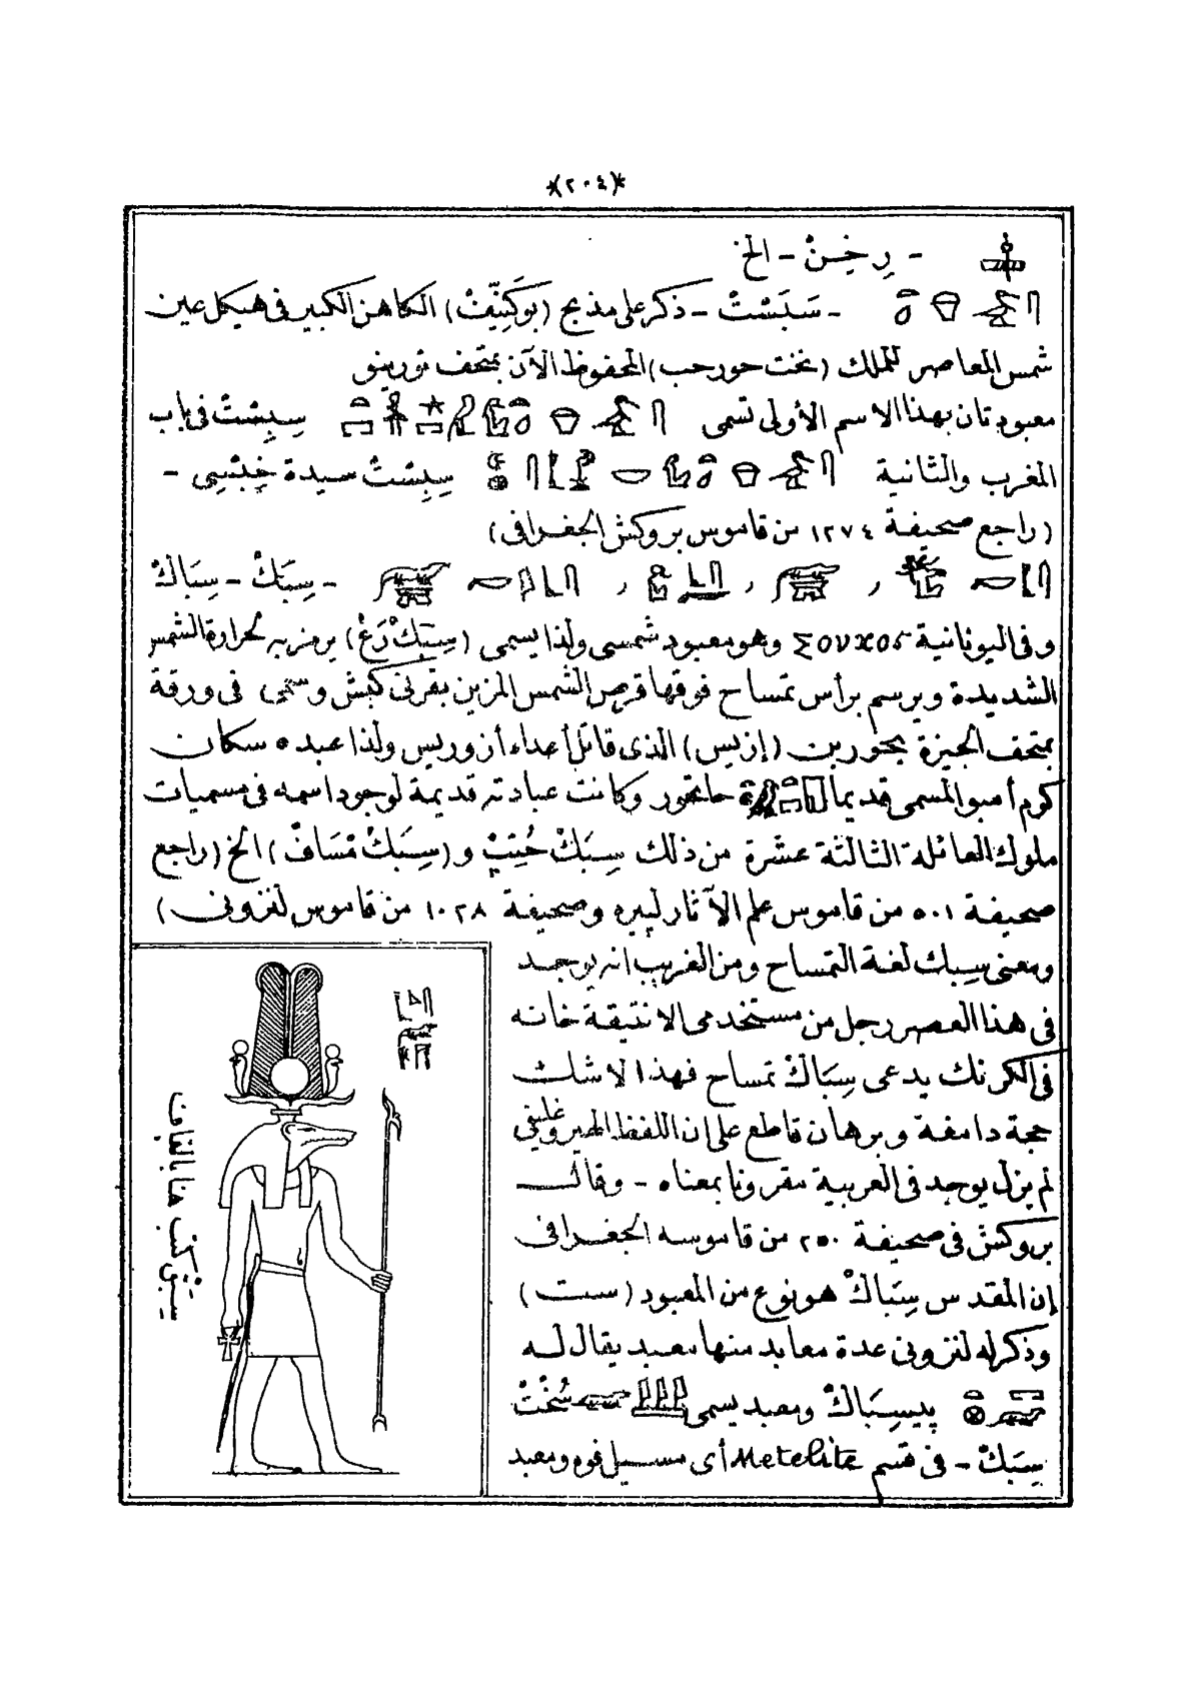 *(٢٠٤)*
- رِخِنْ - الخ
- سَبَسْتْ - ذكر على مذبح (بوكَنِّيفْ) الكاهن الكبير في هيكل عين
شمس المعاصر للملك (نخت حورحب) المحفوظ الآن بمتحف تورينو
معبودتان بهذا الاسم الأولى تسمى سِبِسْتْ في باب
المغرب والثانية سِبِسْتْ سيدة خِبْسِى -
(راجع صحيفة ١٢٧٤ من قاموس بروكش الجغرافى)
، ، ، - سِبَكْ - سِبَاكْ
وفى اليونانية Σουχος وهو معبود شمسى ولذا يسمى (سِبَكْ رَعْ) يرمز به لحرارة الشمس
الشديدة ويرسم برأس تمساح فوقها قرص الشمس المزين بقرنى كبش وسمى فى ورقة
بمتحف الجيزة بحور بن (إزيس) الذى قاتل أعداء أزوريس ولذا عبده سكان
كوم أمبو المسمى قديما حاتحور وكانت عبادته قديمة لوجود اسمه فى مسميات
ملوك العائلة الثالثة عشرة من ذلك سِبَكْ حُتِپْ و (سِبَكْ مْسَافْ) الخ (راجع
صحيفة ٥٠١ من قاموس علم الآثار لپيره وصحيفة ١٠٢٨ من قاموس لنزونى)
ومعنى سبك لغة التمساح ومن الغريب انه يوجد
فى هذا العصر رجل من مستخدمى الانتيقة خانه
فى الكرنك يدعى سِبَاكْ تمساح فهذا لا شك
حجة دامغة وبرهان قاطع على ان اللفظ الهيروغليفي
لم يزل يوجد فى العربية مقرونا بمعناه - وقال
بروكش فى صحيفة ٢٥٠ من قاموسه الجغرافى
إن المقدس سِبَاكْ هو نوع من المعبود (ست)
وذكر له لنزونى عدة معابد منها معبد يقال له
پيسِبَاكْ ومعبد يسمى سُخْتْ
سِبَكْ - فى قسم Metelite أى مسيل فوه ومعبد
سِبَقْ كتب هنا بالقاف